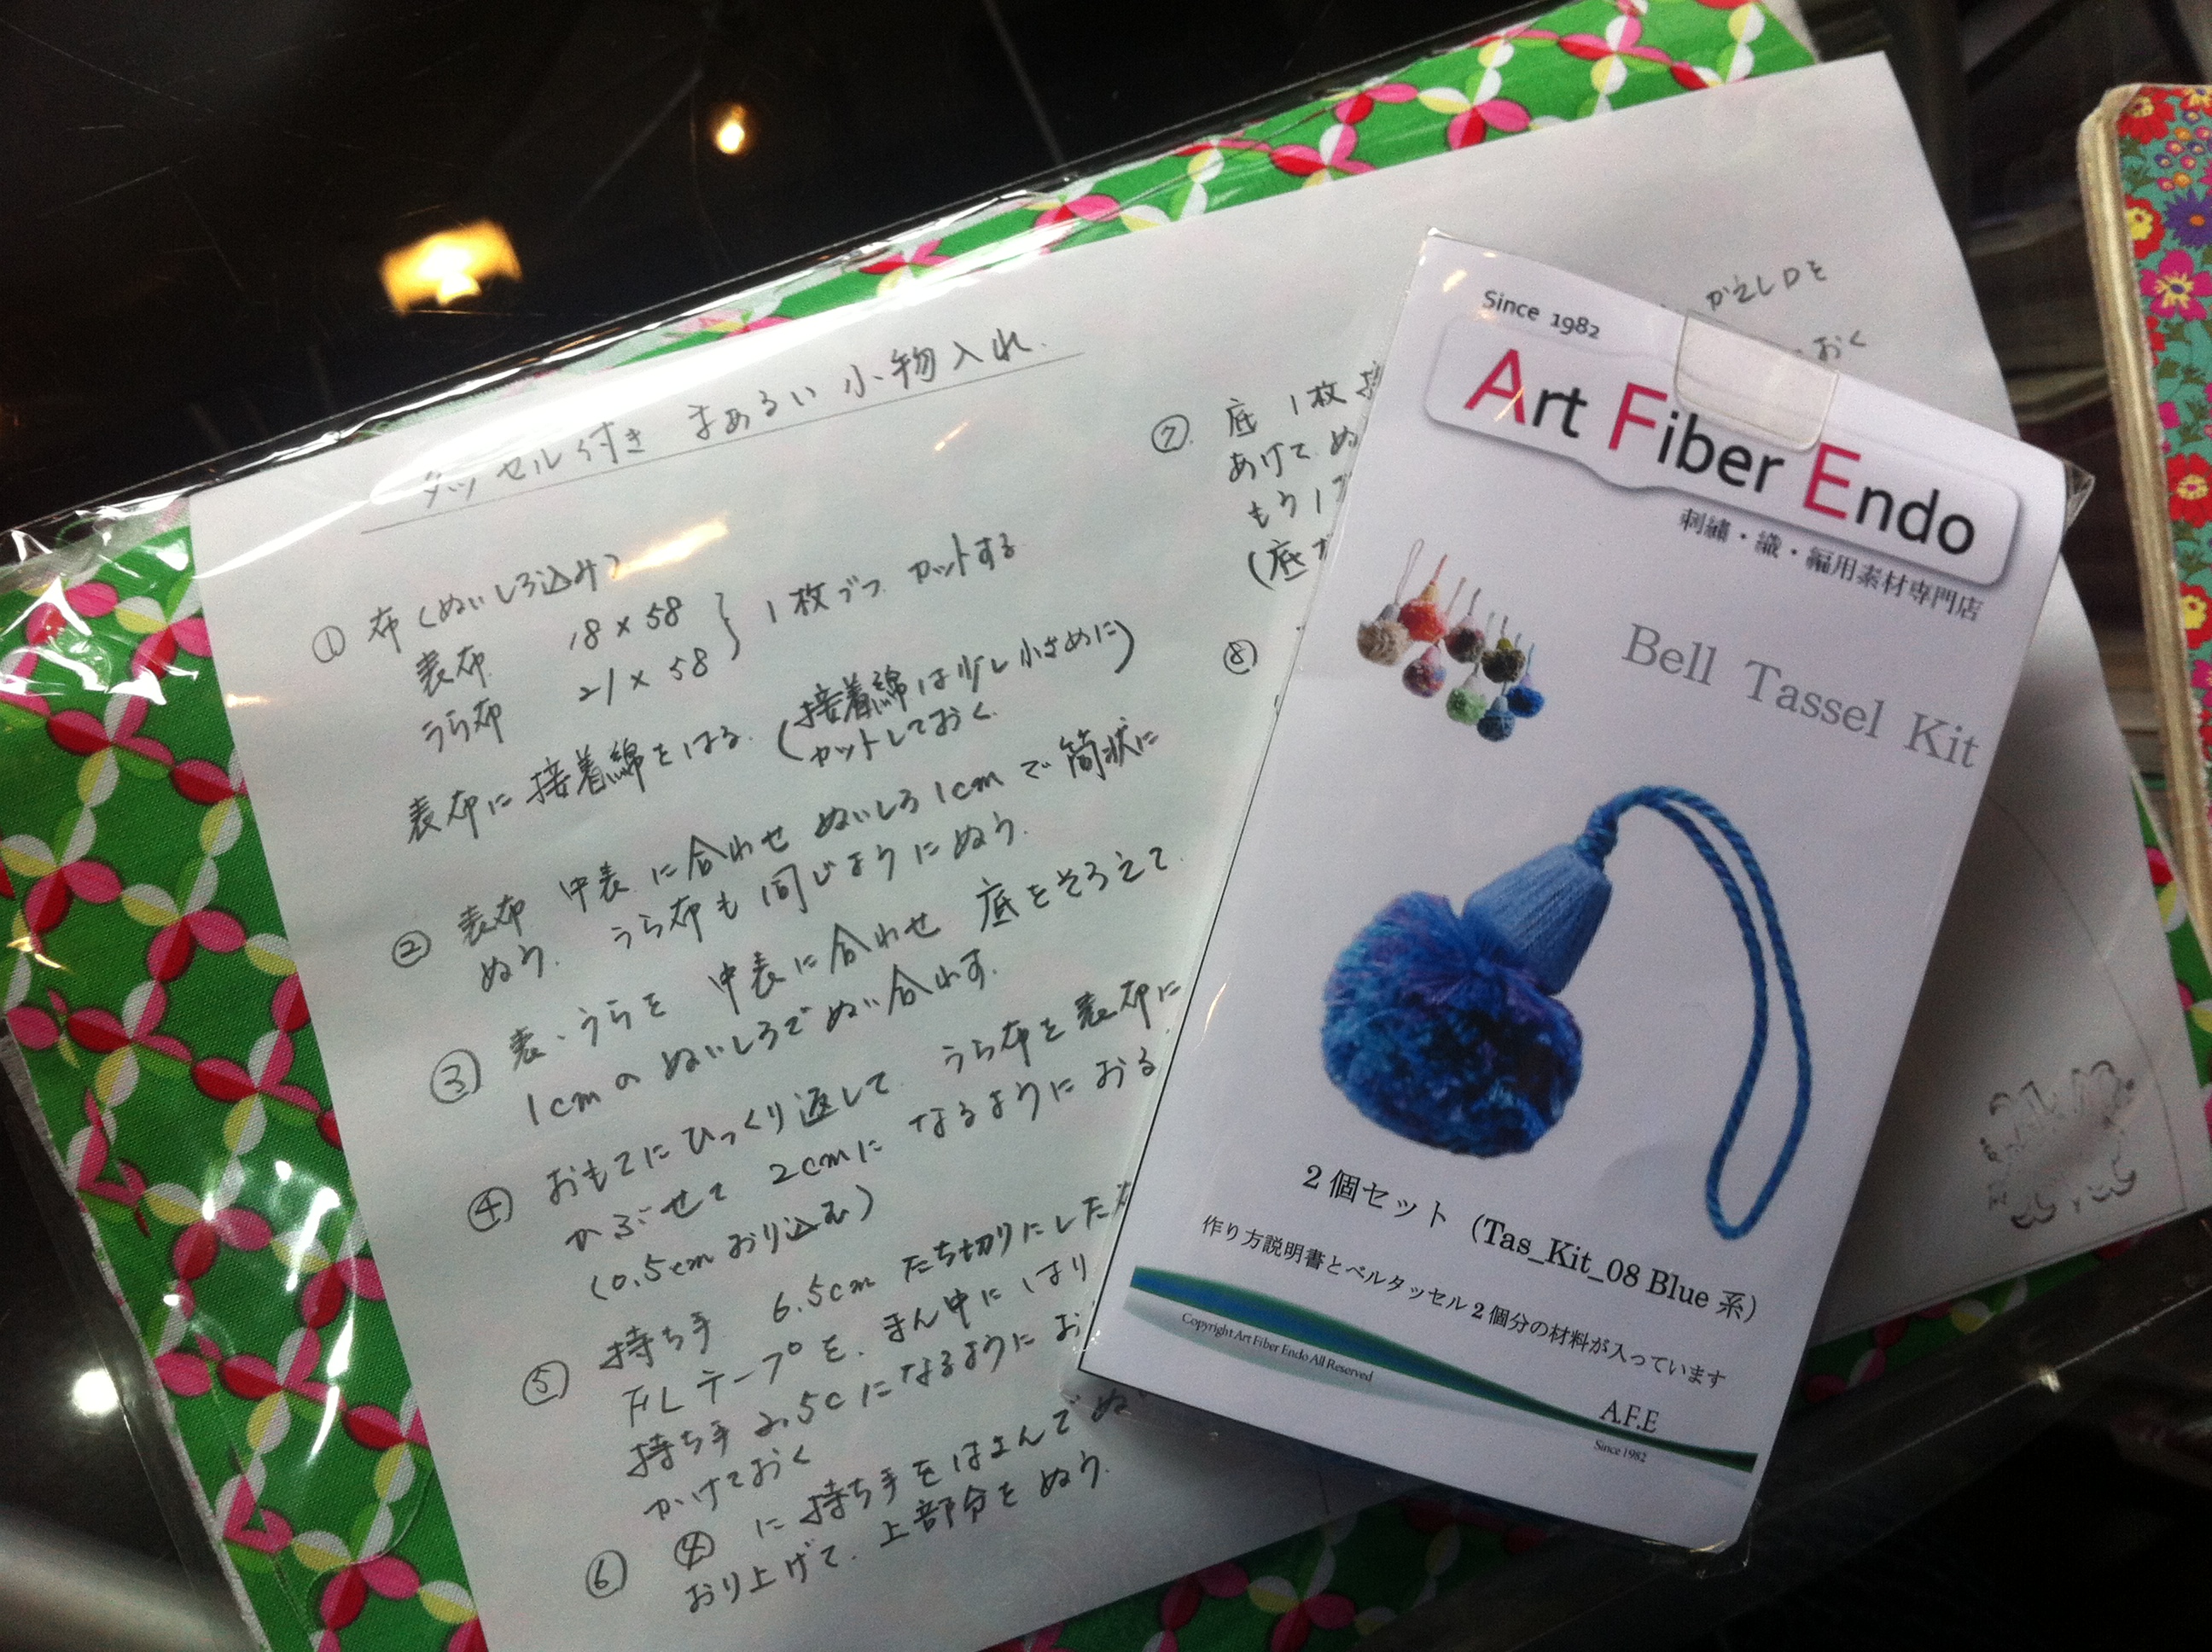 タッセル付き まあるい小物入れ.
① 布(ぬいしろ込み)
表布 18×58
うら布 21×58
} 1枚づつ カットする
表布に接着綿をはる. (接着綿は少し小さめに
カットしておく)
② 表布 中表に合わせ ぬいしろ1cmで筒状に
ぬう. うら布も同じようにぬう.
③ 表、うらを 中表に合わせ 底をそろえて
1cmの ぬいしろで ぬい合わす.
④ おもてにひっくり返して うら布を表布に
かぶせて 2cmに なるように おる
(0.5cm おり込む)
⑤ 持ち手 6.5cm たち切りにした
FLテープを、まん中に はり
持ち手 2.5cに なるように お
かけておく
⑥ ④に持ち手をはさんで ぬ
おり上げて. 上部分を ぬう.
かえし口を
おく
⑦ 底 1枚
あけて ぬ
もう1
(底
⑧
Since 1982
Art Fiber Endo
刺繍・織・編用素材専門店
Bell Tassel Kit
2個セット (Tas_Kit_08 Blue 系)
作り方説明書とベルタッセル2個分の材料が入っています
Copyright Art Fiber Endo All Reserved
A.F.E
Since 1982